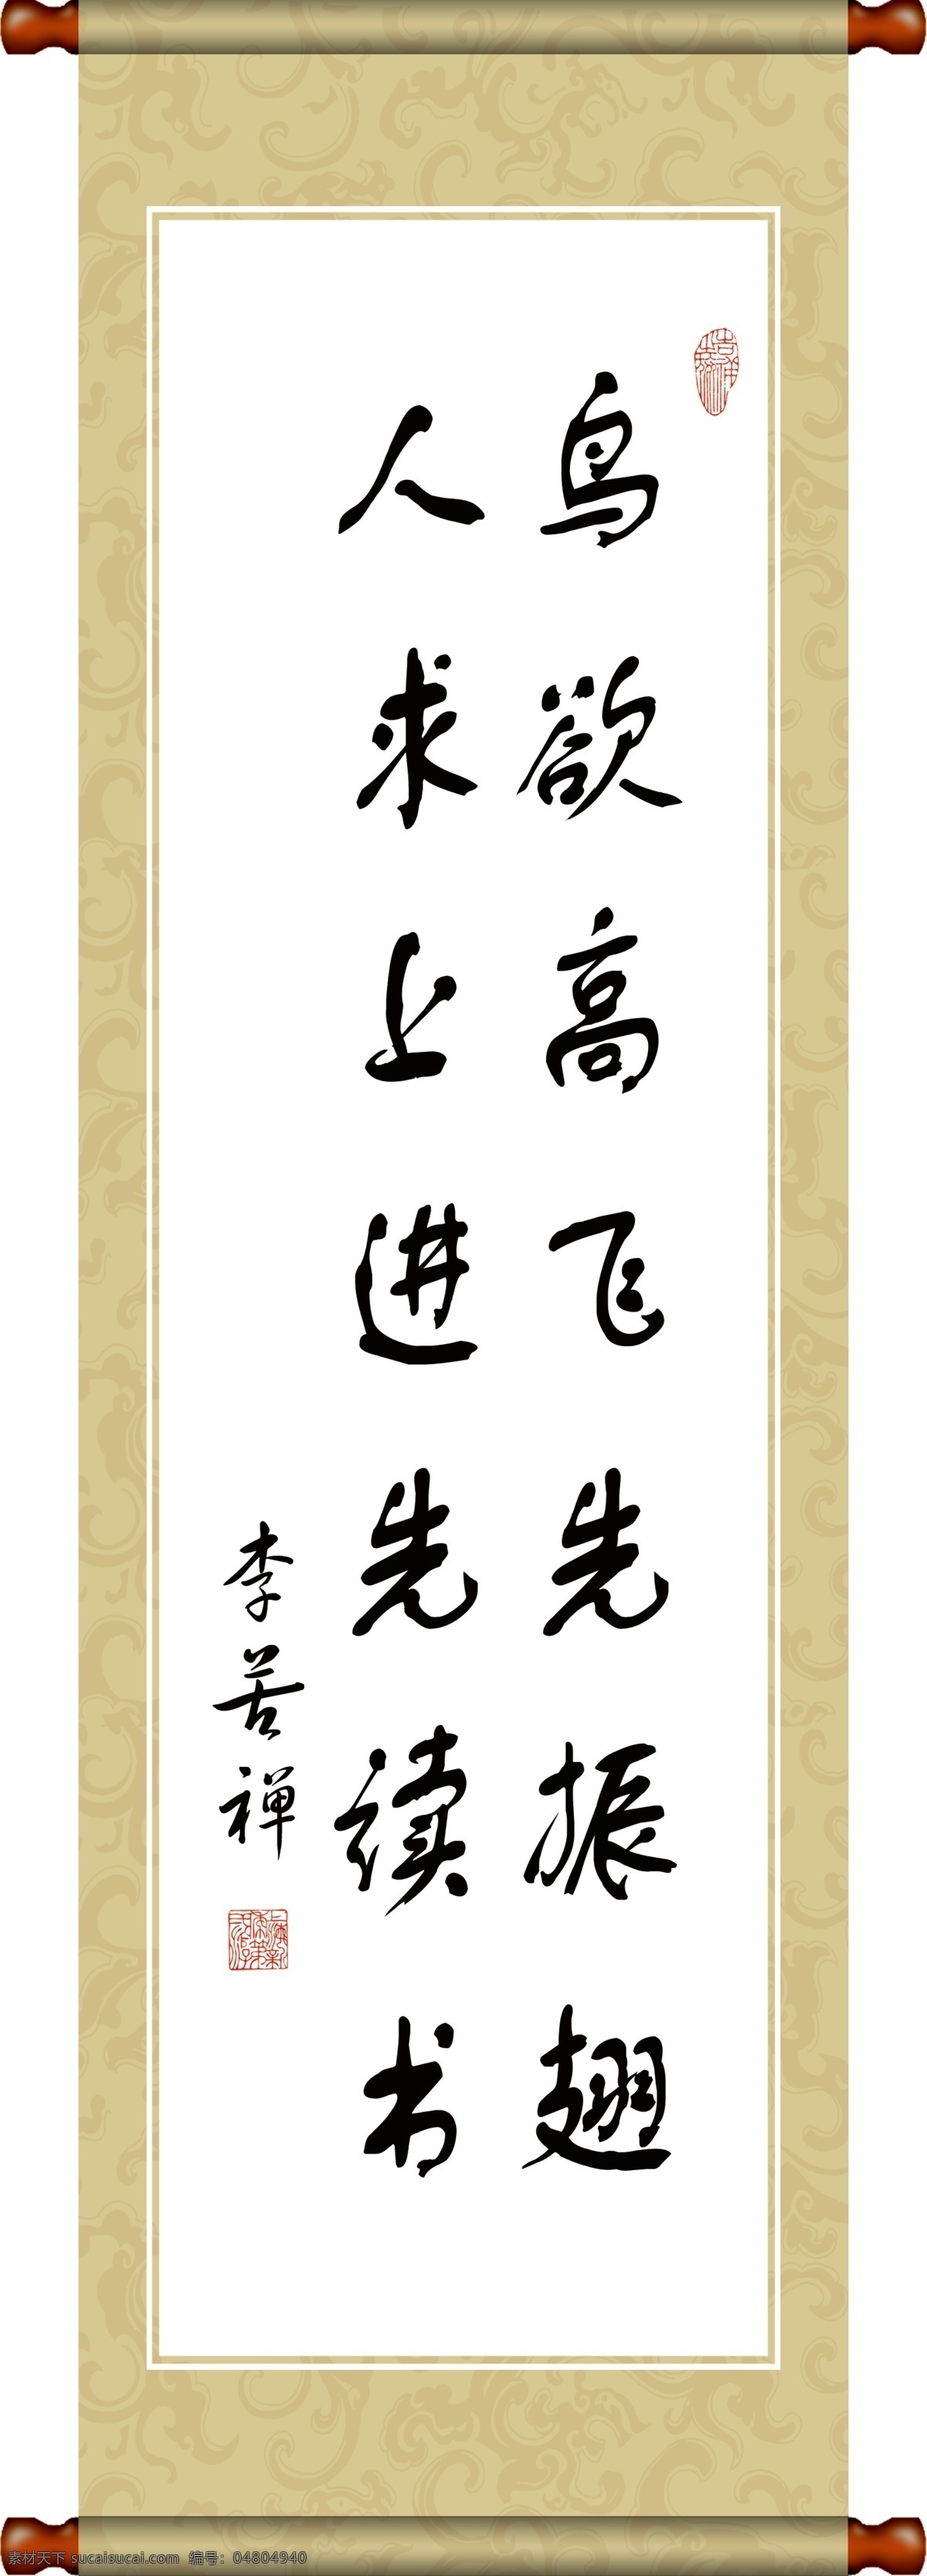 鸟欲高飞先振翅
人求上进先续书
李苦禅
素材天下 sucaisucai.com 编号：04804940